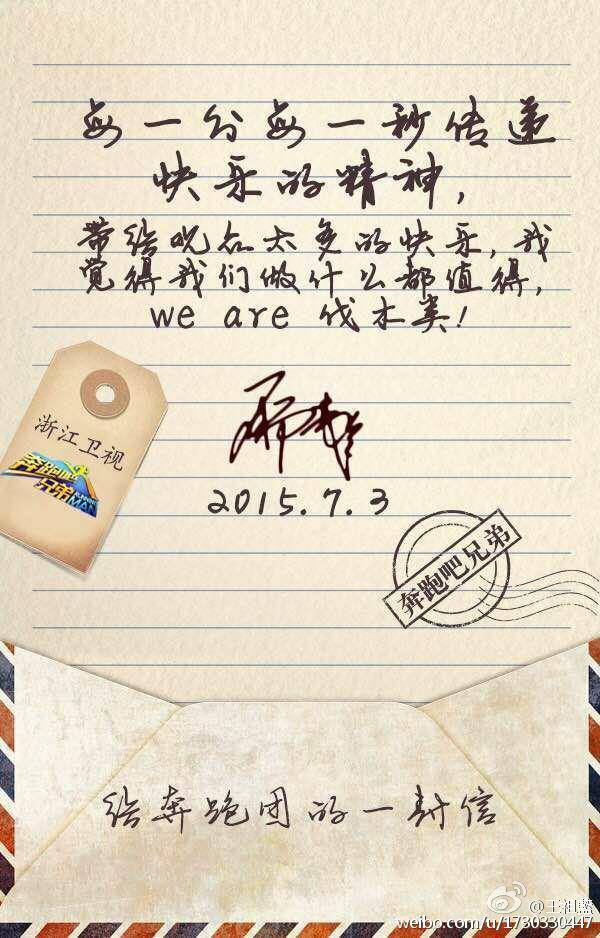 每一分每一秒传递
快乐的精神，
带给观众太多的快乐，我
觉得我们做什么都值得，
we are 伐木类！
2015.7.3
浙江卫视
奔跑吧
兄弟
RUNNING
MAN
奔跑吧兄弟
给奔跑团的一封信
@王祖蓝
weibo.com/u/1730330447